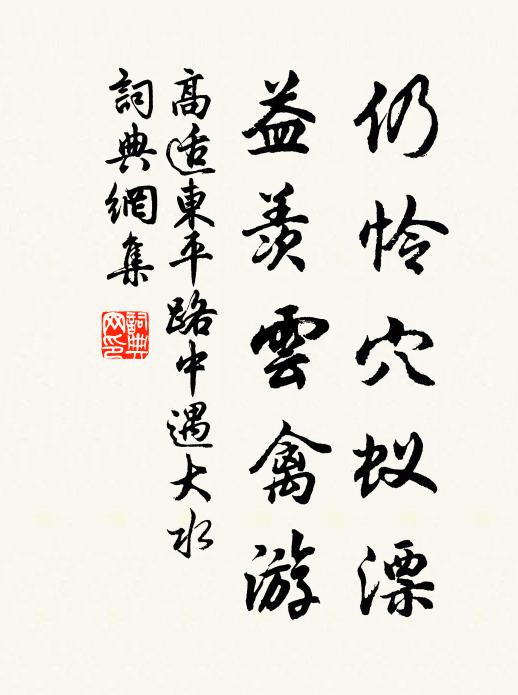 仍怜穴蚁漂
益羡雲禽游
高适東平路中遇大水
詞典網集
詞典网印